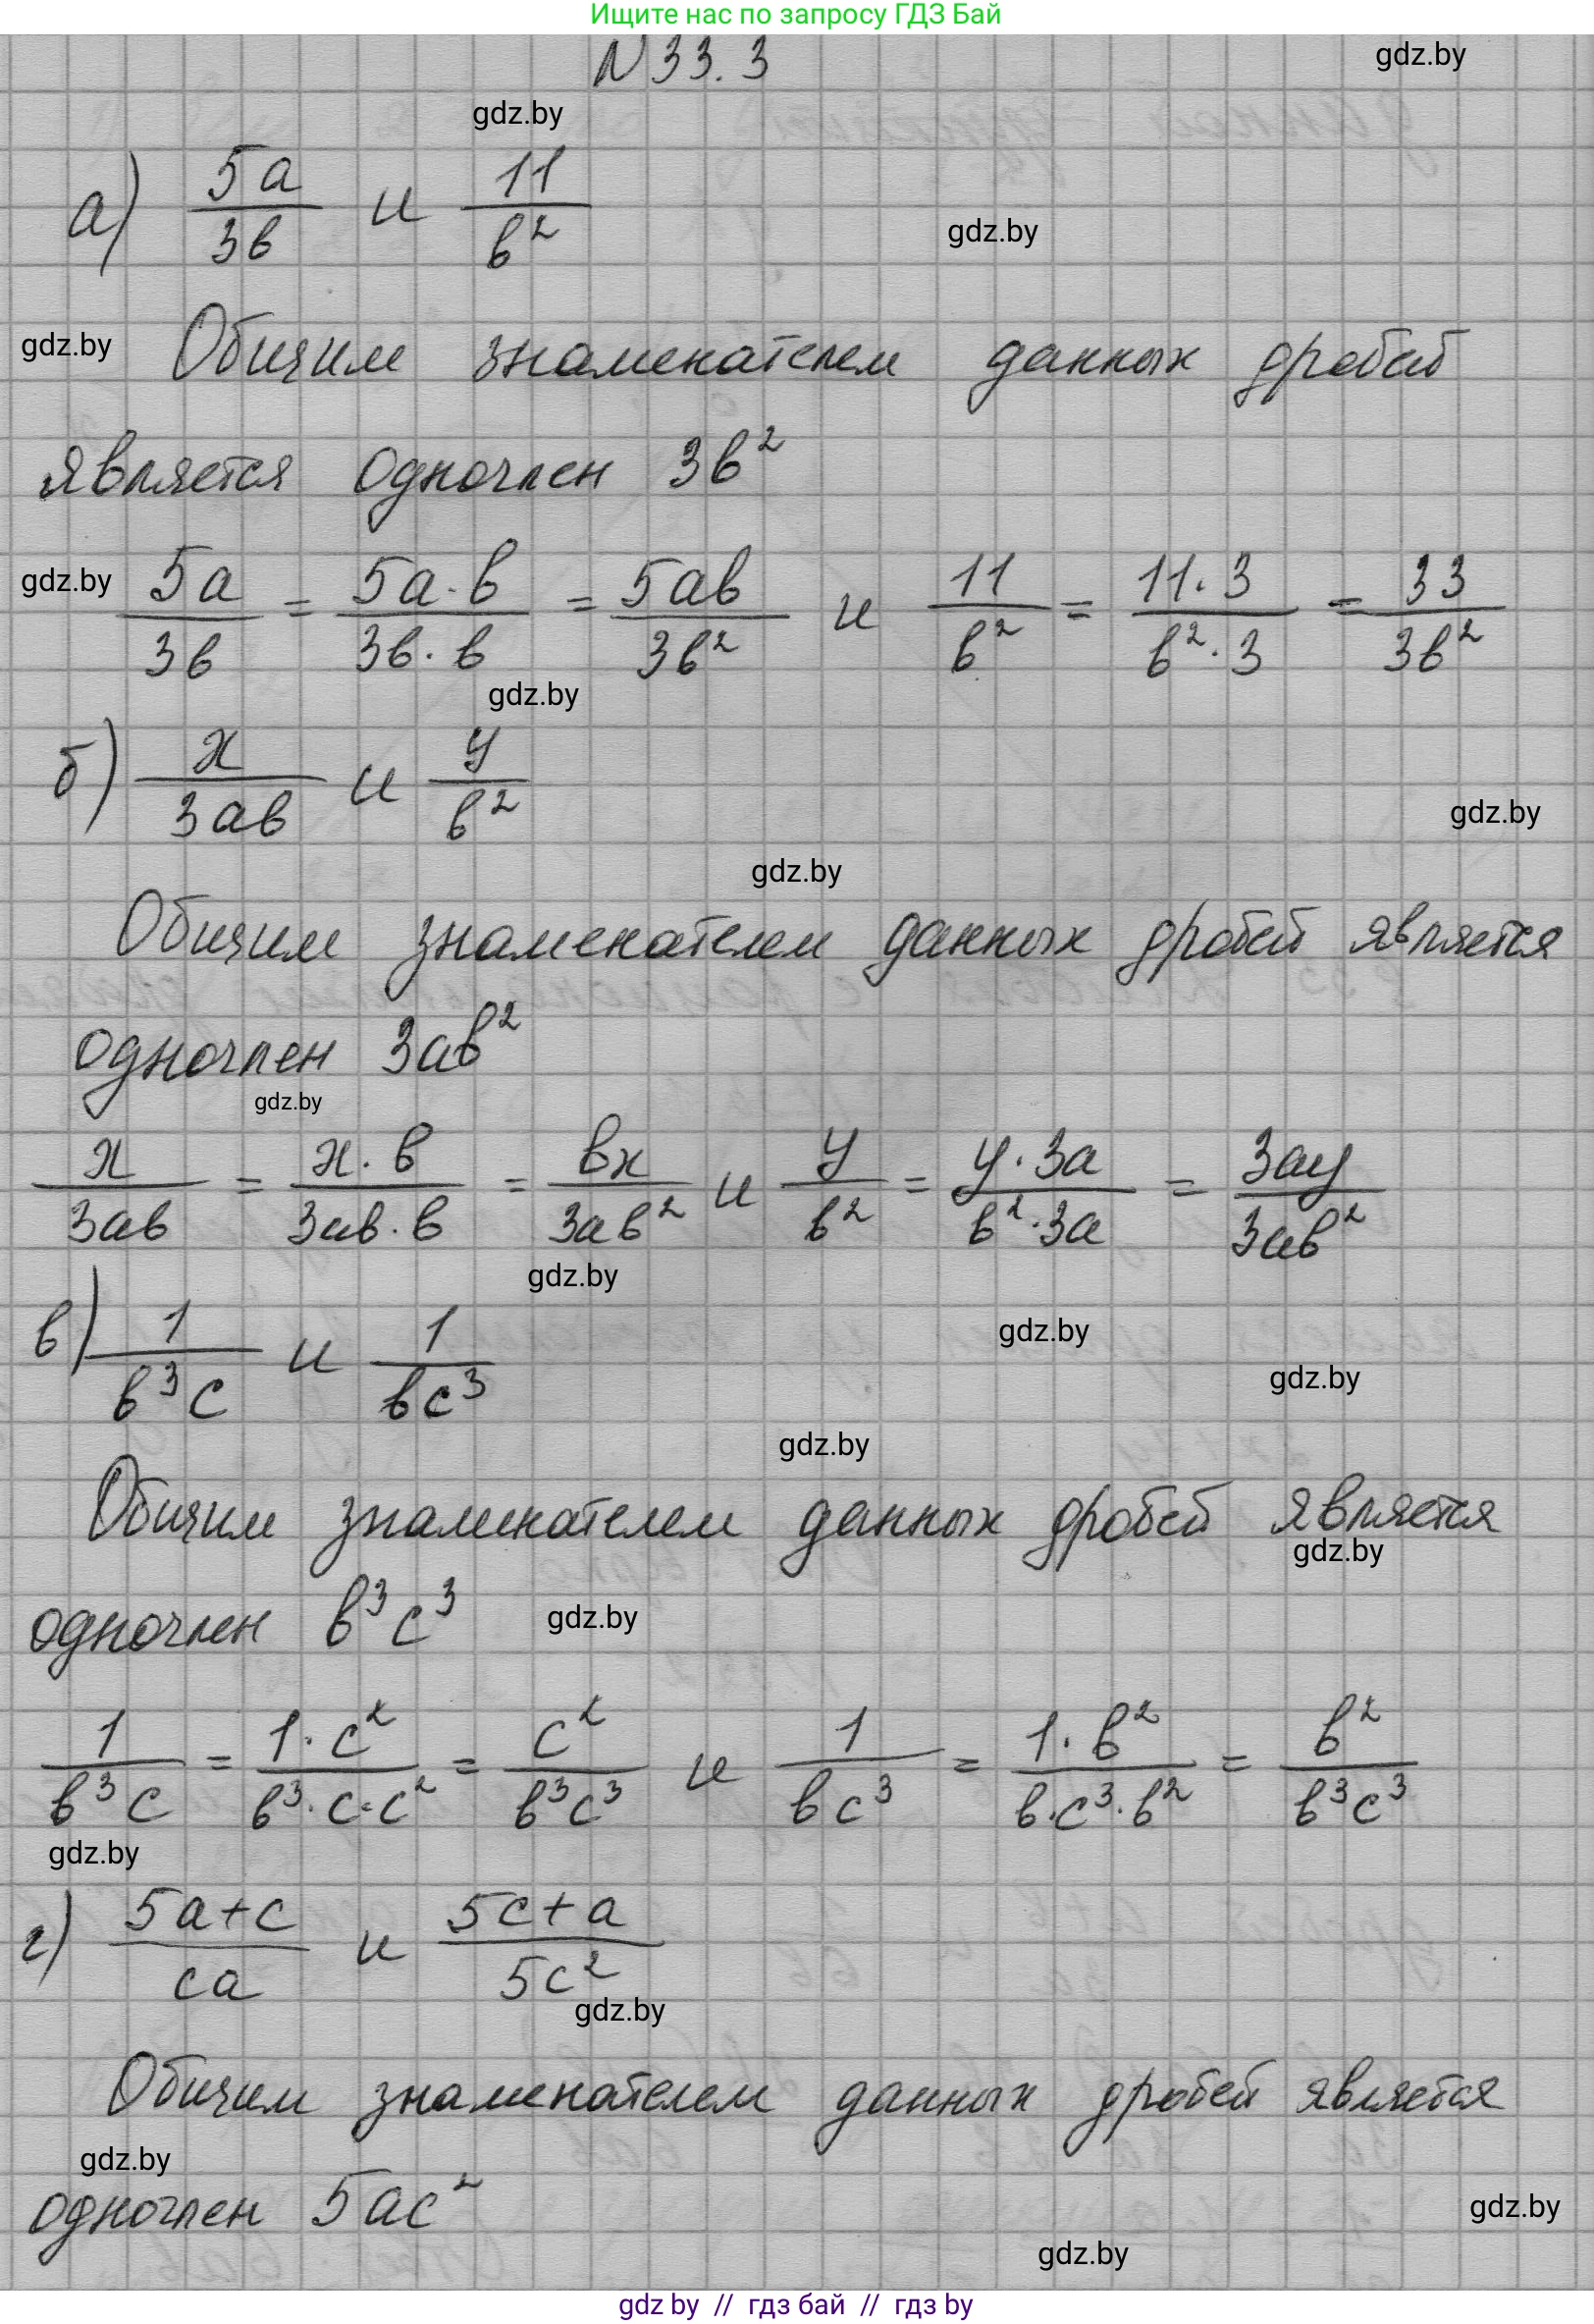 Ищите нас по запросу ГДЗ Бай
N 33.3
gdz.by
gdz.by
а) 5a/3b и 11/b²
gdz.by
gdz.by
Общим знаменателем данных дробей
является одночлен 3b²
gdz.by
5a/3b = 5a·b/3b·b = 5ab/3b² и 11/b² = 11·3/b²·3 = 33/3b²
gdz.by
б) x/3ab и y/b²
gdz.by
gdz.by
Общим знаменателем данных дробей является
одночлен 3ab²
gdz.by
x/3ab = x·b/3ab·b = bx/3ab² и y/b² = y·3a/b²·3a = 3ay/3ab²
gdz.by
gdz.by
в) 1/b³c и 1/bc³
gdz.by
gdz.by
Общим знаменателем данных дробей является
gdz.by
одночлен b³c³
gdz.by
1/b³c = 1·c²/b³·c·c² = c²/b³c³ и 1/bc³ = 1·b²/b·c³·b² = b²/b³c³
gdz.by
г) 5a+c/ca и 5c+a/5c²
gdz.by
Общим знаменателем данных дробей является
gdz.by
одночлен 5ac²
gdz.by
gdz.by
gdz by // гдз бай // гдз by